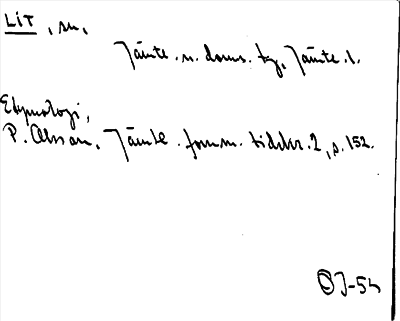 LIT, sn,
Jämte. n. doms. bg, Jämte. l.
Etymologi,
P. Olsson, Jämte. fornm. tidskr. 2, s. 152.
OJ-54